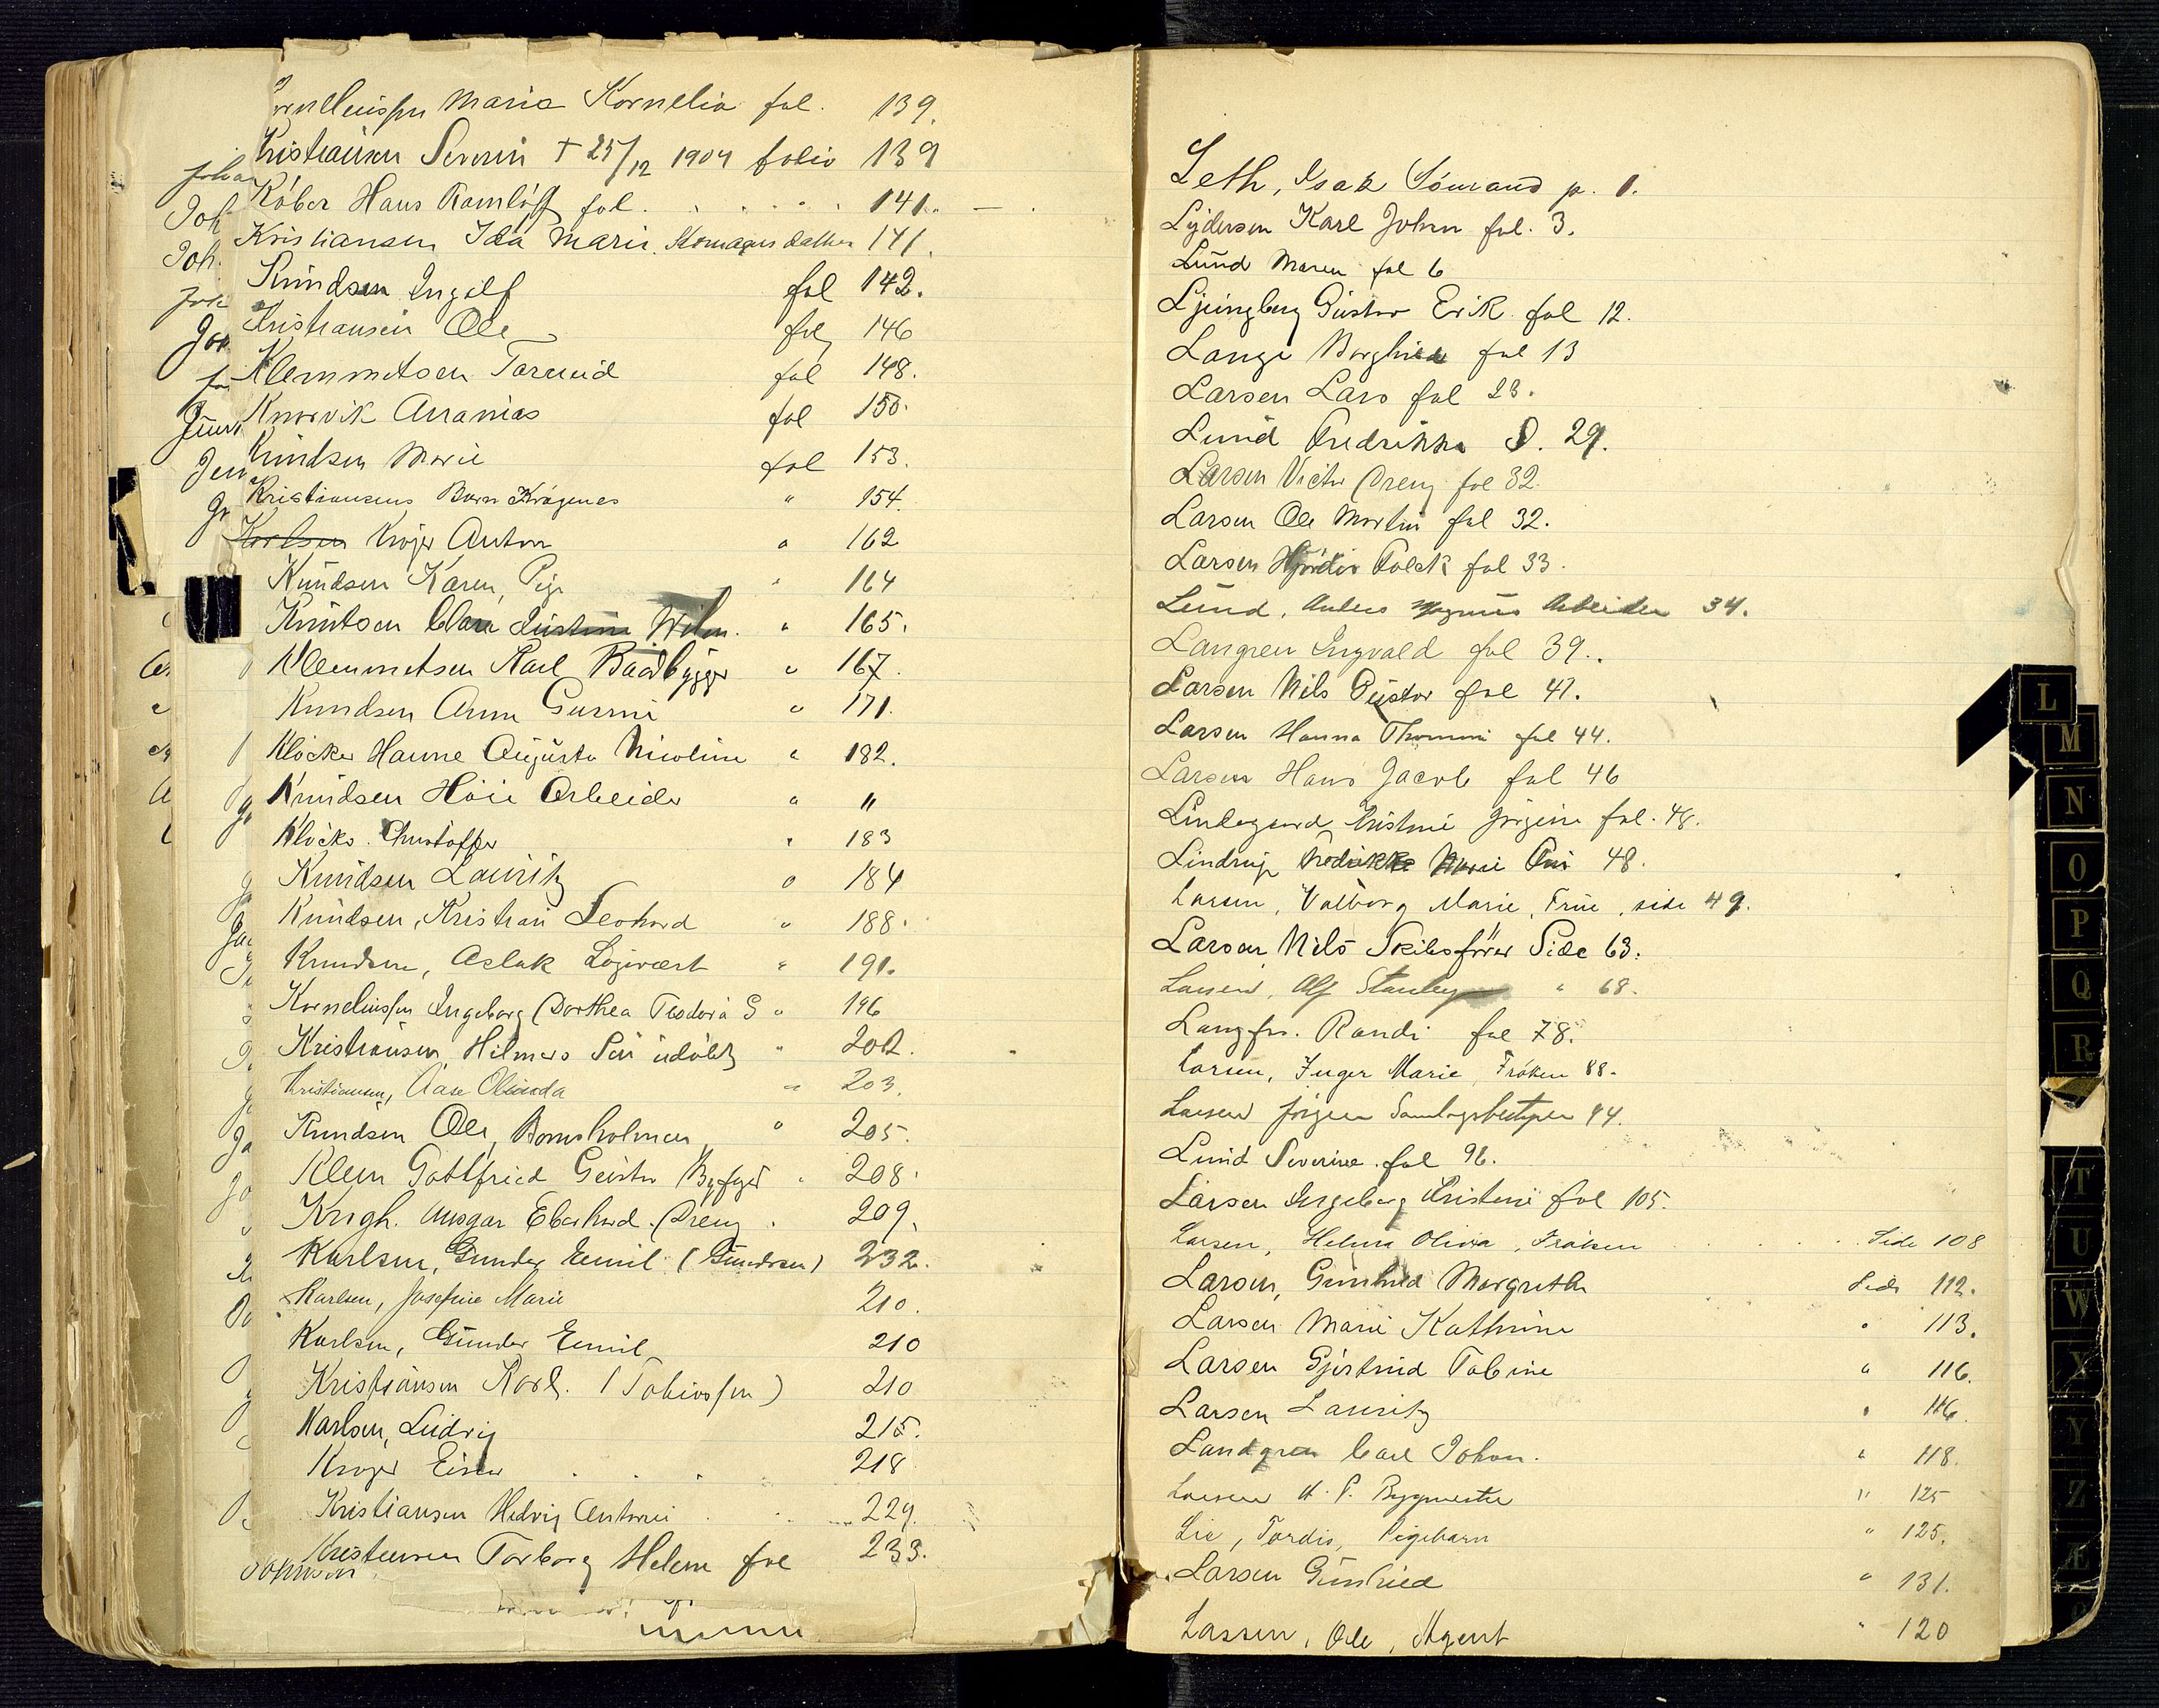 Maria Kornelia fol. 139.
Kristiansen Severin + 25/12 1904 folio 139
Köber Hans Ramlöff fol. 141.
Kristiansen Ida Marie 141.
Knudsen Ingolf fol 142.
Kristiansen Ole fol 146
Klemmetsen Tormod fol 148.
Knarvik Annanias fol 150.
Knudsen Marie fol 153.
Kristiansens Barn Kragenes " 154.
Karlsen Krøjer Anton " 162
Knudsen Karen, Pige " 164
Knutsen Clara " 165.
Klemmetsen Karl Baadbygger " 167.
Knudsen Anna Gurine " 171.
Klöcker Hanne Augusta Nicoline " 182.
Knudsen Höie Arbeider " "
Klöcker Christoffer " 183
Knudsen Lauritz " 184
Knudsen, Kristian Leonhard " 188.
Knudsen, Aslak " 191.
Ingeborg Dorthea Teodora S " 196
Kristiansen, Hilmers Søn udöbt " 202.
Kristiansen, Aase Olinda " 203.
Knudsen Ole, Bornsholmen " 205.
Klein Gottfried Gustav " 208.
Krogh. Ansgar Eberhard. Dreng . 209.
Karlsen, Gunder Emil (Gundersen) 232.
Karlsen, Josefine Marie 210.
Karlsen, Gunder Emil 210
Kristiansen Karl. (Tobiassen) 210
Karlsen, Ludvig 215.
Krøger Einar 218
Kristiansen Hedvig Antonie 229.
Kristensen Torborg Helene fol 233.
Leth, Isak Sömand p. 1.
Lydersen Karl Johan fol. 3.
Lund Maren fol 6
Ljungberg Gustav Erik fol 12.
Lange Borghild fol 13
Larsen Lars fol 23.
Lund Fredrikke S. 29.
Larsen Victor Dreng fol 32.
Larsen Ole Martin fol 32.
Larsen Hjördis Falck fol 33.
Lund, Anders Magnus Arbeider 34.
Langren Ingvald fol 39.
Larsen Nils Gustav fol 41.
Larsen Hanna Thomine fol 44.
Larsen Hans Jacob fol 46
Lindegaard Kristine Jörgine fol. 48.
Lindrup Fredrikke Marie 48.
Larsen, Valborg Marie, Frue, side 49.
Larsen Nils Skibsförer Side 63.
Larsen, Alf Stanley " 68.
Randi fol 78.
Larsen, Inger Marie, Fröken 88.
Larsen Jörgen Samlagsbestyrer 94.
Lund Severine fol 96.
Larsen Ingeborg Kristine fol 105.
Larsen, Helma Olivia, Fröken Side 108
Larsen, Gunhild Margrethe Side 112.
Larsen Marie Kathrine " 113.
Larsen Gjertrud Tobine " 116.
Larsen Lauritz " 116.
Landgren Carl Johan. " 118.
Larsen H. P. Bygmester " 125
Lie, Tordis, Pigebarn " 125.
Larsen Gunhild " 131.
Lassen, Ole, Agent " 120
L
M
N
O
P
Q
R
T
U
W
X
Y
Z
Æ